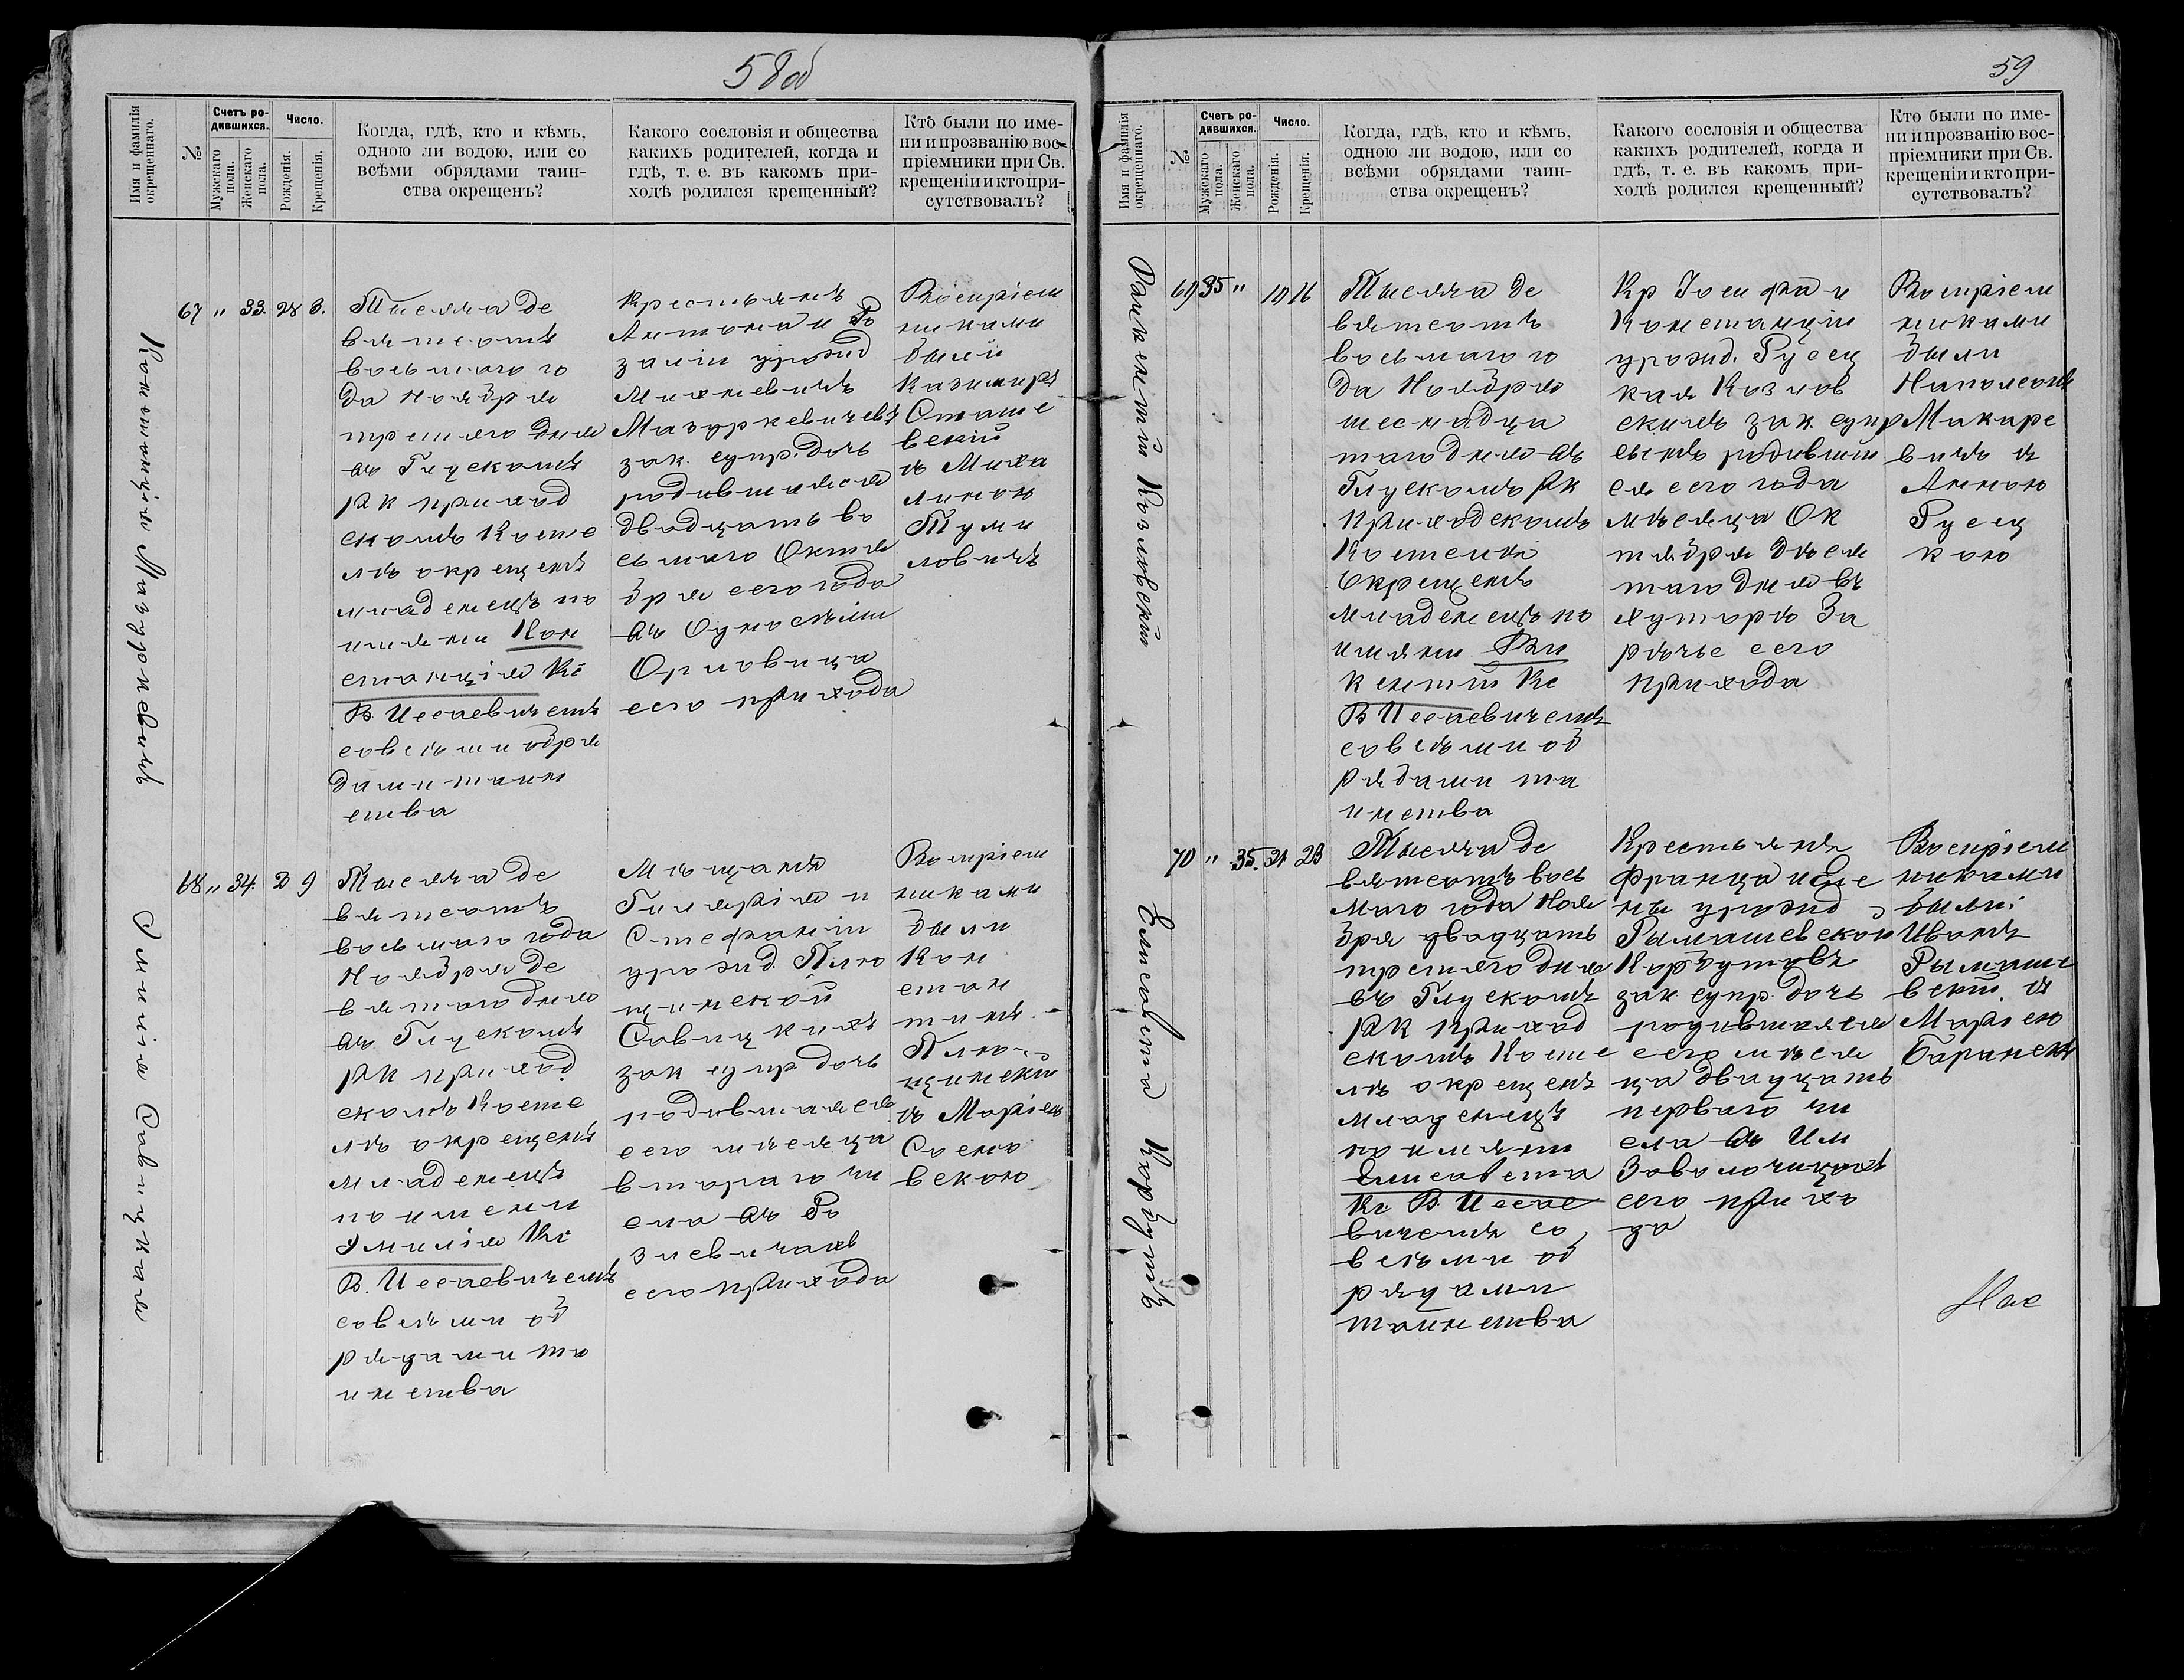 58об
Имя и фамилія
окрещеннаго.
№
Счетъ ро-
дившихся.
Мужскаго
пола.
Женскаго
пола.
Число.
Рожденія.
Крещенія.
Когда, гдѣ, кто и кѣмъ,
одною ли водою, или со
всѣми обрядами таин-
ства окрещенъ?
Какого сословія и общества
какихъ родителей, когда и
гдѣ, т. е. въ какомъ при-
ходѣ родился крещенный?
Кто были по име-
ни и прозванію вос-
пріемники при Св.
крещеніи и кто при-
сутствовалъ?
Констанція Мазуркевичъ
67 " 33. 28 3.
Тысяча де
вятсотъ
восьмаго го
да Ноября
третяго дня
въ Глускомъ
РК приход
скомъ Косте
лѣ окрещенъ
младенецъ по
имяни Кон
станція Кс
В. Иссаевичемъ
совсѣми обря
дами таин
ства
Крестьянъ
Антона и Ро
заліи урожд
Михневичъ
Мазуркевичевъ
зак. супр. дочь
родившаяся
двадцать во
сьмаго Октя
бря сего года
въ Околосѣліи
Орловица
сего прихода
Воспріем
никами
были
Казимиръ
Сташе
вскій
съ Миха
линою
Туми
ловичъ
Эмилія Савицкая
68 " 34. 2 9
Тысяча де
вятсотъ
восьмаго года
Ноября де
вятаго дня
въ Глускомъ
РК приход
скомъ Косте
лѣ окрещенъ
младенецъ
по имени
Эмилія Кс
В. Иссаевичемъ
совсѣми об
рядами та
инства
Мѣщанъ
Гилярія и
Стефаніи
урожд. Плю
щинской
Савицкихъ
зак супр дочь
родившаяся
сего мѣсяца
втораго чи
сла въ Ро
злевичахъ
сего прихода
Воспріем
никами
были
Кон
стан
тинъ
Плю-
щинскій
съ Маріею
Сосно
вскою
59
Имя и фамилія
окрещеннаго.
№
Счетъ ро-
дившихся.
Мужскаго
пола.
Женскаго
пола.
Число.
Рожденія.
Крещенія.
Когда, гдѣ, кто и кѣмъ,
одною ли водою, или со
всѣми обрядами таин-
ства окрещенъ?
Какого сословія и общества
какихъ родителей, когда и
гдѣ, т. е. въ какомъ при-
ходѣ родился крещенный?
Кто были по име-
ни и прозванію вос-
пріемники при Св.
крещеніи и кто при-
сутствовалъ?
Викентій Козловскій
69 35 " 10 16
Тысяча де
вятсотъ
восьмаго го
да Ноября
шеснадца
таго дня въ
Глускомъ РК
Приходскомъ
Костелѣ
Окрещенъ
младенецъ по
имяни Ви
кентій Кс
В Иссаевичемъ
совсѣми об
рядами та
инства
Кр Іосифа и
Констанціи
урожд. Русец
кая Козлов
скихъ зак. супр
сынъ родивший
ся сего года
мѣсяца Ок
тября десятаго дня въ
хуторѣ За
рѣчье сего
прихода
Воспріем
никами
были
Наполеонъ
Макаре
вичъ съ
Анною
Русец
кою
Елисавета Корбутъ
70 " 35. 21 23
Тысяча де
вятсотъ вось
маго года Ноя
бря двадцать
третяго дня
въ Глускомъ
РК приход
скомъ Косте
лѣ окрещенъ
младенецъ
по имяни
Елисавета
Кс В. Иссае
вичемъ со
всѣми об
рядами
таинства
Крестьянъ
Франца и Еле
ны урожд
Рымашевской
Корбутовъ
зак. супр. дочь
родившаяся
сего мѣся
ца двадцать
перваго чи
сла въ Им
Заволочицахъ
сего прихо
да
Воспріем
никами
были:
Иванъ
Рымаше
вскій съ
Маріею
Барановск